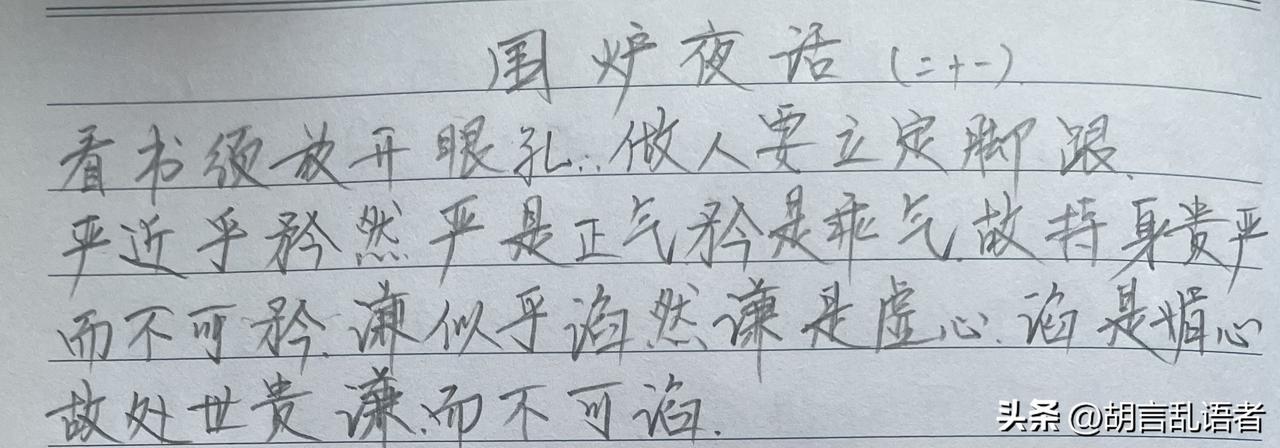 围炉夜话(二十一)
看书须放开眼孔.做人要立定脚跟.
严近乎矜然严是正气矜是乖气.故持身贵严
而不可矜.谦似乎谄然谦是虚心.谄是媚心
故处世贵谦.而不可谄.
头条@胡言乱语者